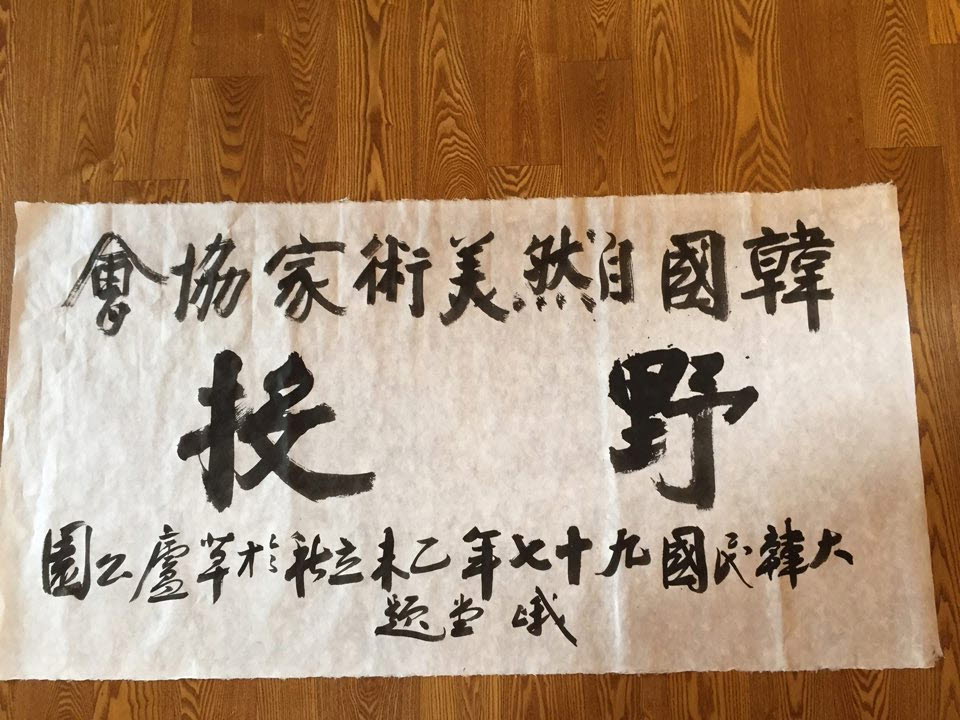 韓國自然美術家協會
野投
大韓民國九十七年乙未立秋於草廬公園
峨堂題